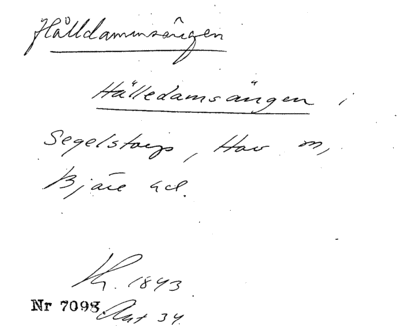 Hålldammsängen
Hälledamsängen i
Segelstorp, Hov m,
Bjäre hd.
Kr. 1893
Nr 7098 Ant 34.